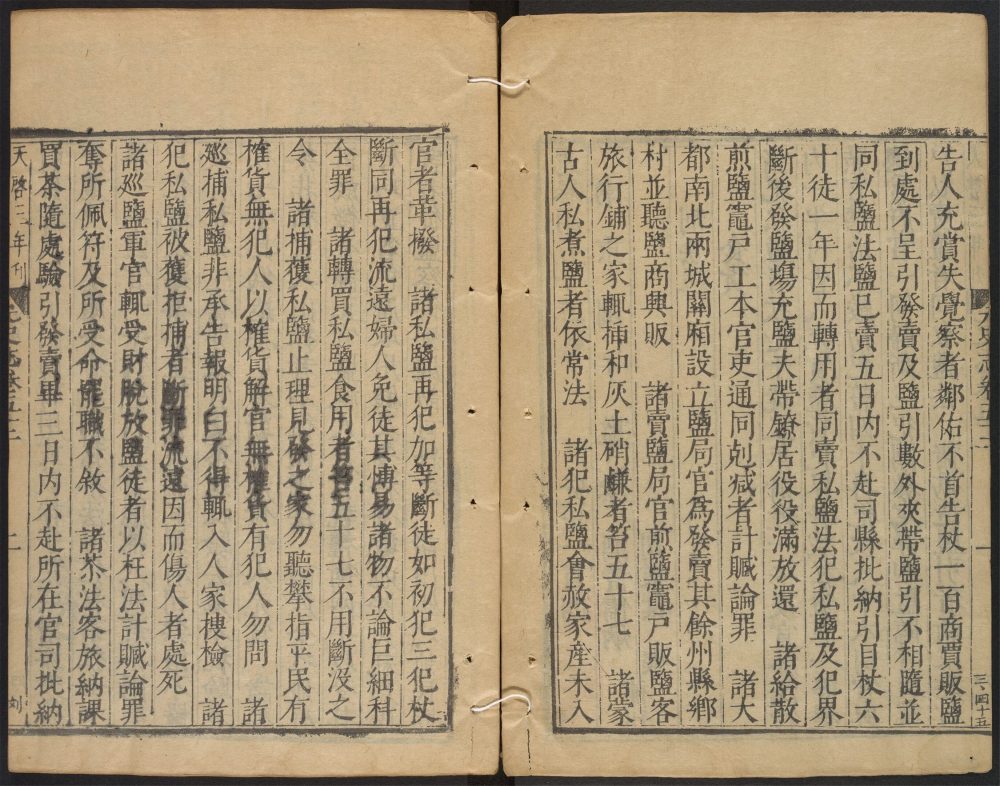 告人充賞失覺察者鄰佑不首告杖一百商賈販鹽
到處不呈引發賣及鹽引數外夾帶鹽引不相隨並
同私鹽法鹽已賣五日內不赴司縣批納引目杖六
十徒一年因而轉用者同賣私鹽法犯私鹽及犯界
斷後發鹽場充鹽夫帶鐐居役役滿放還　諸給散
煎鹽竈戶工本官吏通同剋減者計贓論罪　諸大
都南北兩城關廂設立鹽局官爲發賣其餘州縣鄉
村並聽鹽商興販　諸賣鹽局官煎鹽竈戶販鹽客
旅行鋪之家輒插和灰土硝鹻者笞五十七　諸蒙
古人私煮鹽者依常法　諸犯私鹽會赦家產未入
官者革撥　諸私鹽再犯加等斷徒如初犯三犯杖
斷同再犯流遠婦人免徒其博易諸物不論巨細科
全罪　諸轉買私鹽食用者笞五十七不用斷沒之
令　諸捕獲私鹽止理見發之家勿聽攀指平民有
榷貨無犯人以榷貨解官無榷貨有犯人勿問　諸
廵捕私鹽非承告報明白不得輒入人家搜檢　諸
犯私鹽被獲拒捕者斷罪流遠因而傷人者處死
諸廵鹽軍官輒受財脫放鹽徒者以枉法計贓論罪
奪所佩符及所受命罷職不敘　諸茶法客旅納課
買茶隨處驗引發賣畢三日內不赴所在官司批納
天啓三年刊